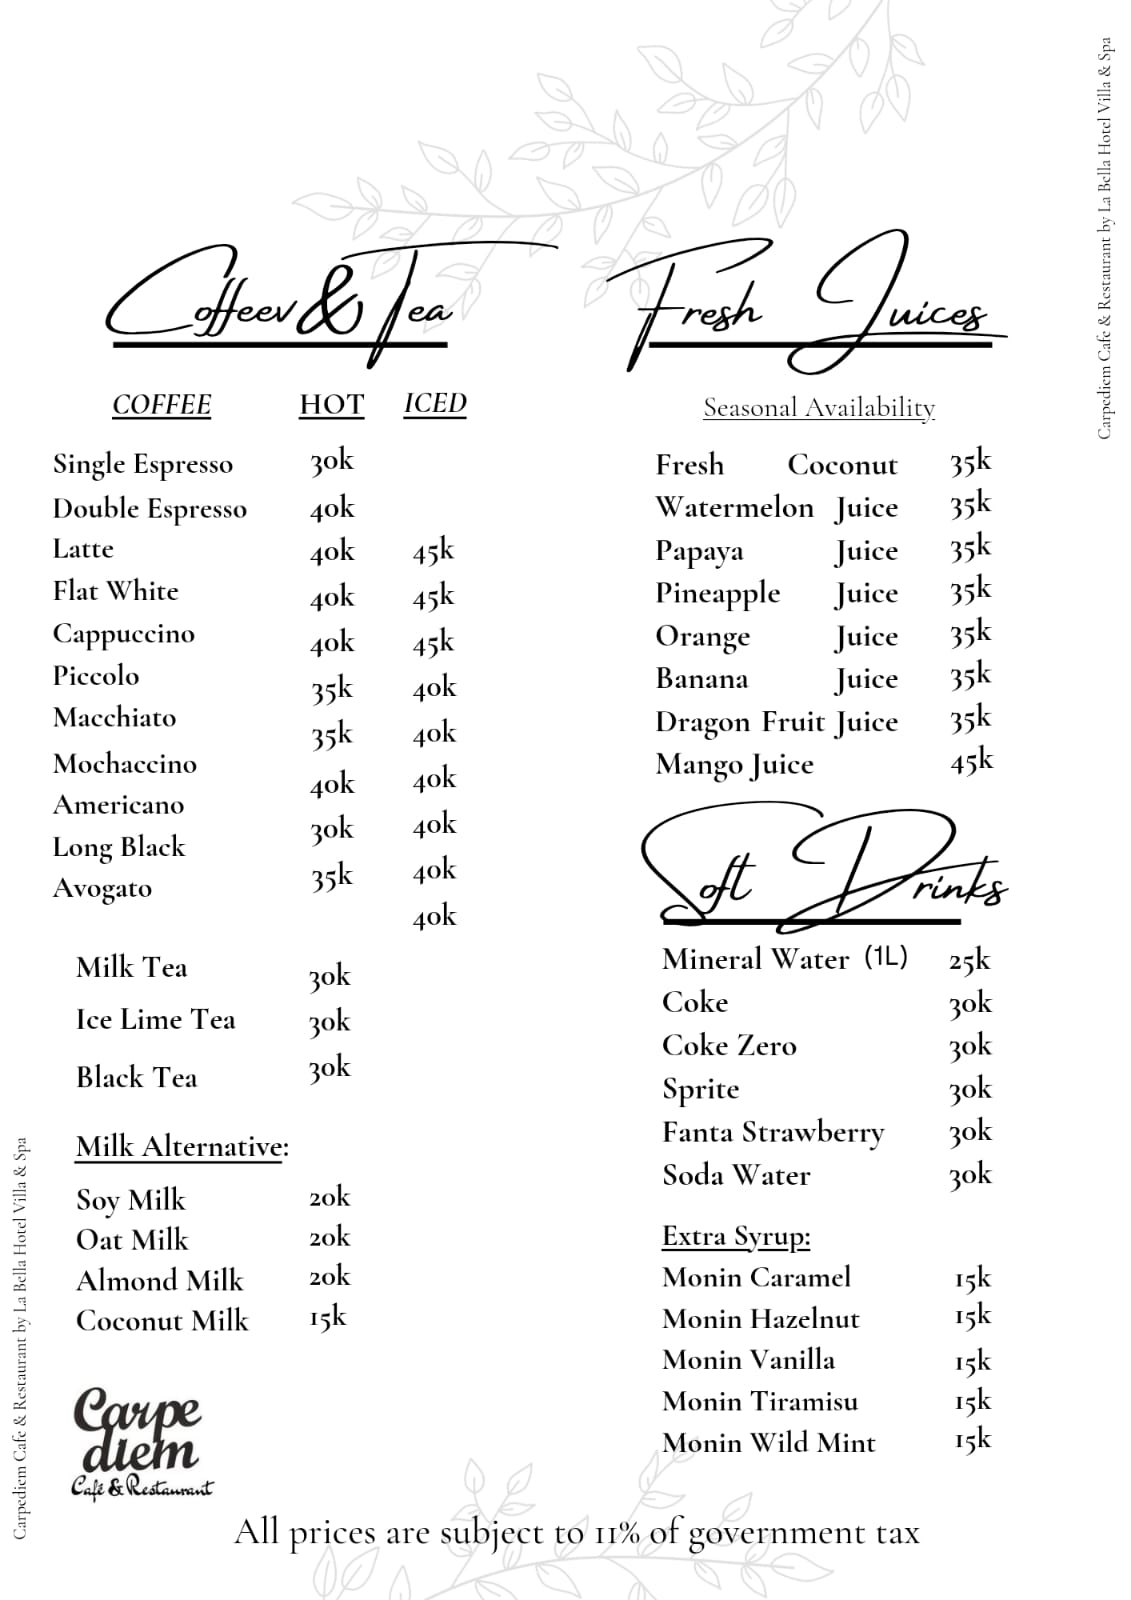 Carpediem Cafe & Restaurant by La Bella Hotel Villa & Spa
Coffeev & Tea
COFFEE HOT ICED
Single Espresso 30k
Double Espresso 40k
Latte 40k 45k
Flat White 40k 45k
Cappuccino 40k 45k
Piccolo 35k 40k
Macchiato 35k 40k
Mochaccino 40k 40k
Americano 30k 40k
Long Black 35k 40k
Avogato 40k
Milk Tea 30k
Ice Lime Tea 30k
Black Tea 30k
Milk Alternative:
Soy Milk 20k
Oat Milk 20k
Almond Milk 20k
Coconut Milk 15k
Carpe
diem
Café & Restaurant
Fresh Juices
Seasonal Availability
Fresh Coconut 35k
Watermelon Juice 35k
Papaya Juice 35k
Pineapple Juice 35k
Orange Juice 35k
Banana Juice 35k
Dragon Fruit Juice 35k
Mango Juice 45k
Soft Drinks
Mineral Water (1L) 25k
Coke 30k
Coke Zero 30k
Sprite 30k
Fanta Strawberry 30k
Soda Water 30k
Extra Syrup:
Monin Caramel 15k
Monin Hazelnut 15k
Monin Vanilla 15k
Monin Tiramisu 15k
Monin Wild Mint 15k
All prices are subject to 11% of government tax
Carpediem Cafe & Restaurant by La Bella Hotel Villa & Spa